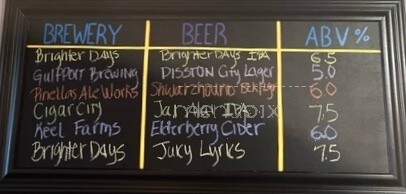 BREWERY BEER ABV%
Brighter Days Brighter Days IPA 6.5
Gulfport Brewing DISSTON City Lager 5.0
Pinellas Ale Works 6.0
Cigar City IPA 7.5
Keel Farms Elderberry Cider 6.0
Brighter Days Juky Lyrks 7.5